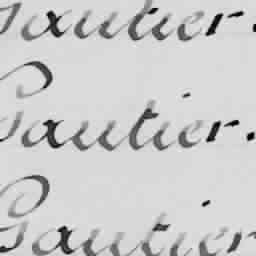 Gautier.
Gautier.
Gautier